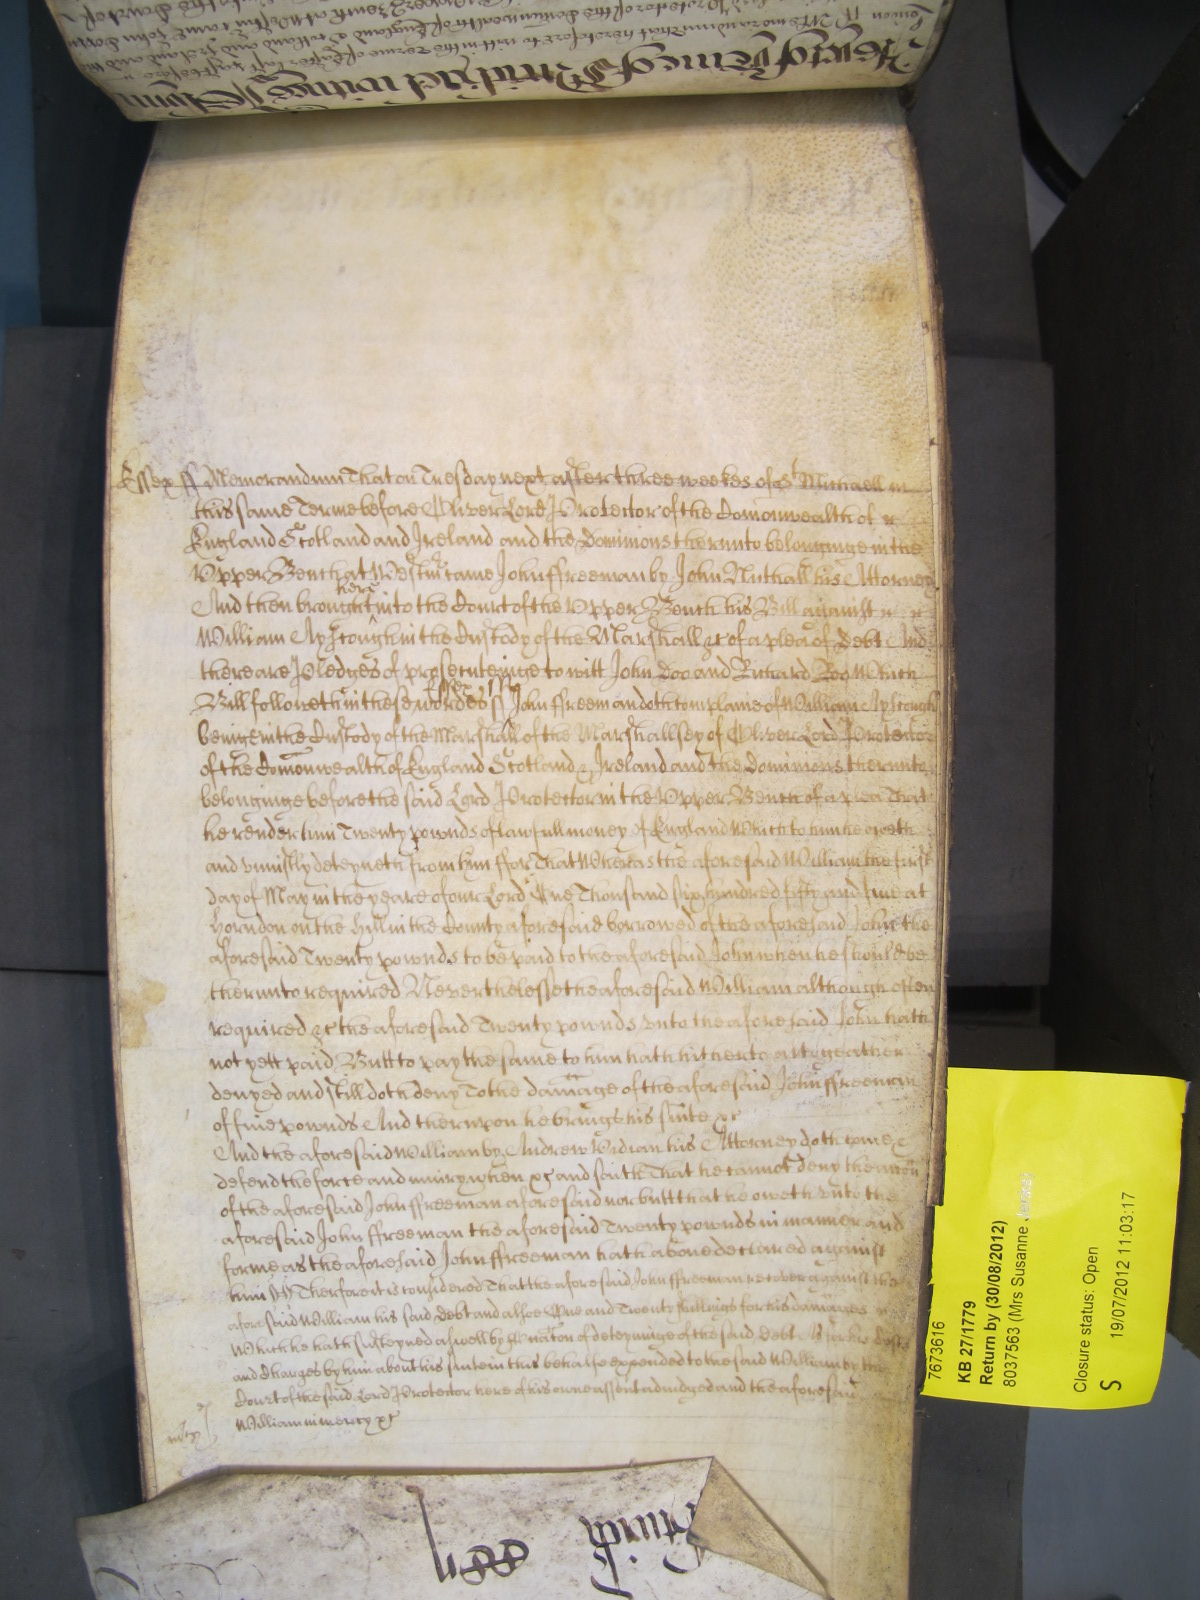 Essex ss Memorandum That on Tuesday next after three weekes of St Michaell in
this same Terme before Oliver Lord Protector of the Comonwealth of
England Scotland and Ireland and the Dominions therunto belonginge in the
Upper Bench at Westmr came John ffreeman by John Nuthall his Attorney
And then brought here into the Court of the Upper Bench his Bill against
William Apstough in the Custody of the Marshall &c of a plea of Debt And
there are Pledges of prosecuteinge to witt John Doo and Richard Roo Which
Bill followeth in these wordes Essex ss John ffreeman doth complaine of William Apstough
beinge in the Custody of the Marshall of the Marshallsey of Oliver Lord Protector
of the Comonwealth of England Scotland & Ireland and the Dominions therunto
belonginge before the said Lord Protector in the Upper Bench of a plea That
he render him Twenty pownds of lawfull money of England Which to him he oweth
and uniustly deteyneth from him ffor That Whereas the aforesaid William the first
day of May in the yeare of our Lord One Thousand six hundred fifty and five at
Horndon on the Hill in the County aforesaid borrowed of the aforesaid John the
aforesaid Twenty pownds to be paid to the aforesaid John when he should be
therunto required Neverthelesse the aforesaid William although often
required &c the aforesaid Twenty pownds unto the aforesaid John hath
not yett paid Butt to pay the same to him hath hitherto altogeather
denyed and still doth deny To the damage of the aforesaid John ffreeman
of five pownds And therupon he brings his suite &c
And the aforesaid William by Andrew Vidian his Attorney doth come &
defend the force and iniury when &c and saith That he cannot deny the accon
of the aforesaid John ffreeman aforesaid nor butt that he oweth unto the
aforesaid John ffreeman the aforesaid Twenty pownds in manner and
forme as the aforesaid John ffreeman hath above declared against
him Therfore it is considered That the aforesaid John ffreeman recover against the
aforesaid William his said Debt and alsoe One and Twenty shillings for his damages
Which he hath susteyned aswell by occacon of deteyninge of the said Debt As for his Costs
and Charges by him about his suite in this behalfe expended to the said William by the
Court of the said Lord Protector here of his owne assent adiudged and the aforesaid
William in mercy &c
7673616
KB 27/1779
Return by (30/08/2012)
8037563 (Mrs Susanne
Closure status: Open
S 19/07/2012 11:03:17